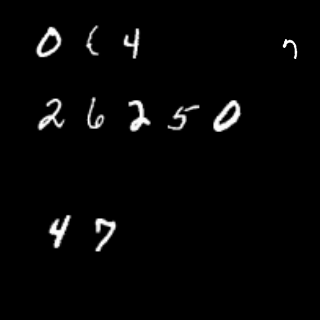 0 { 4 7
2 6 2 5 0
4 7